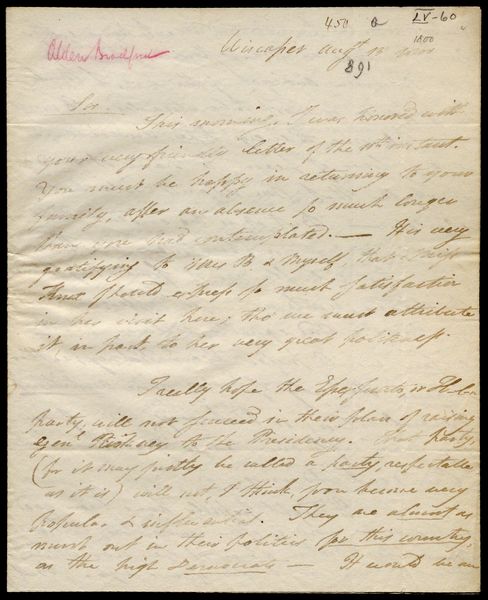 450 a LV-60
1800
Alden Bradford
Wiscasset Augt 1800
891
Sir
This morning, I was honored with
your very friendly letter of the 11th instant.
You must be happy in returning to your
family, after an absence so much longer
than you had contemplated. — It is very
gratifying to Mrs B & myself, that Miss
Knox should express so much satisfaction
in her visit here; tho' we must attribute
it in part, to her very great politeness.
I really hope the Essex Junto, or
party, will not succeed in their plan of raising
Genl. Pinkney to the Presidency. That party,
(for it may justly be called a party, respectable
as it is) will not, I think, soon become very
Popular & influential. They are almost as
much out in their politics for this country,
as the high Democrats — It would be an